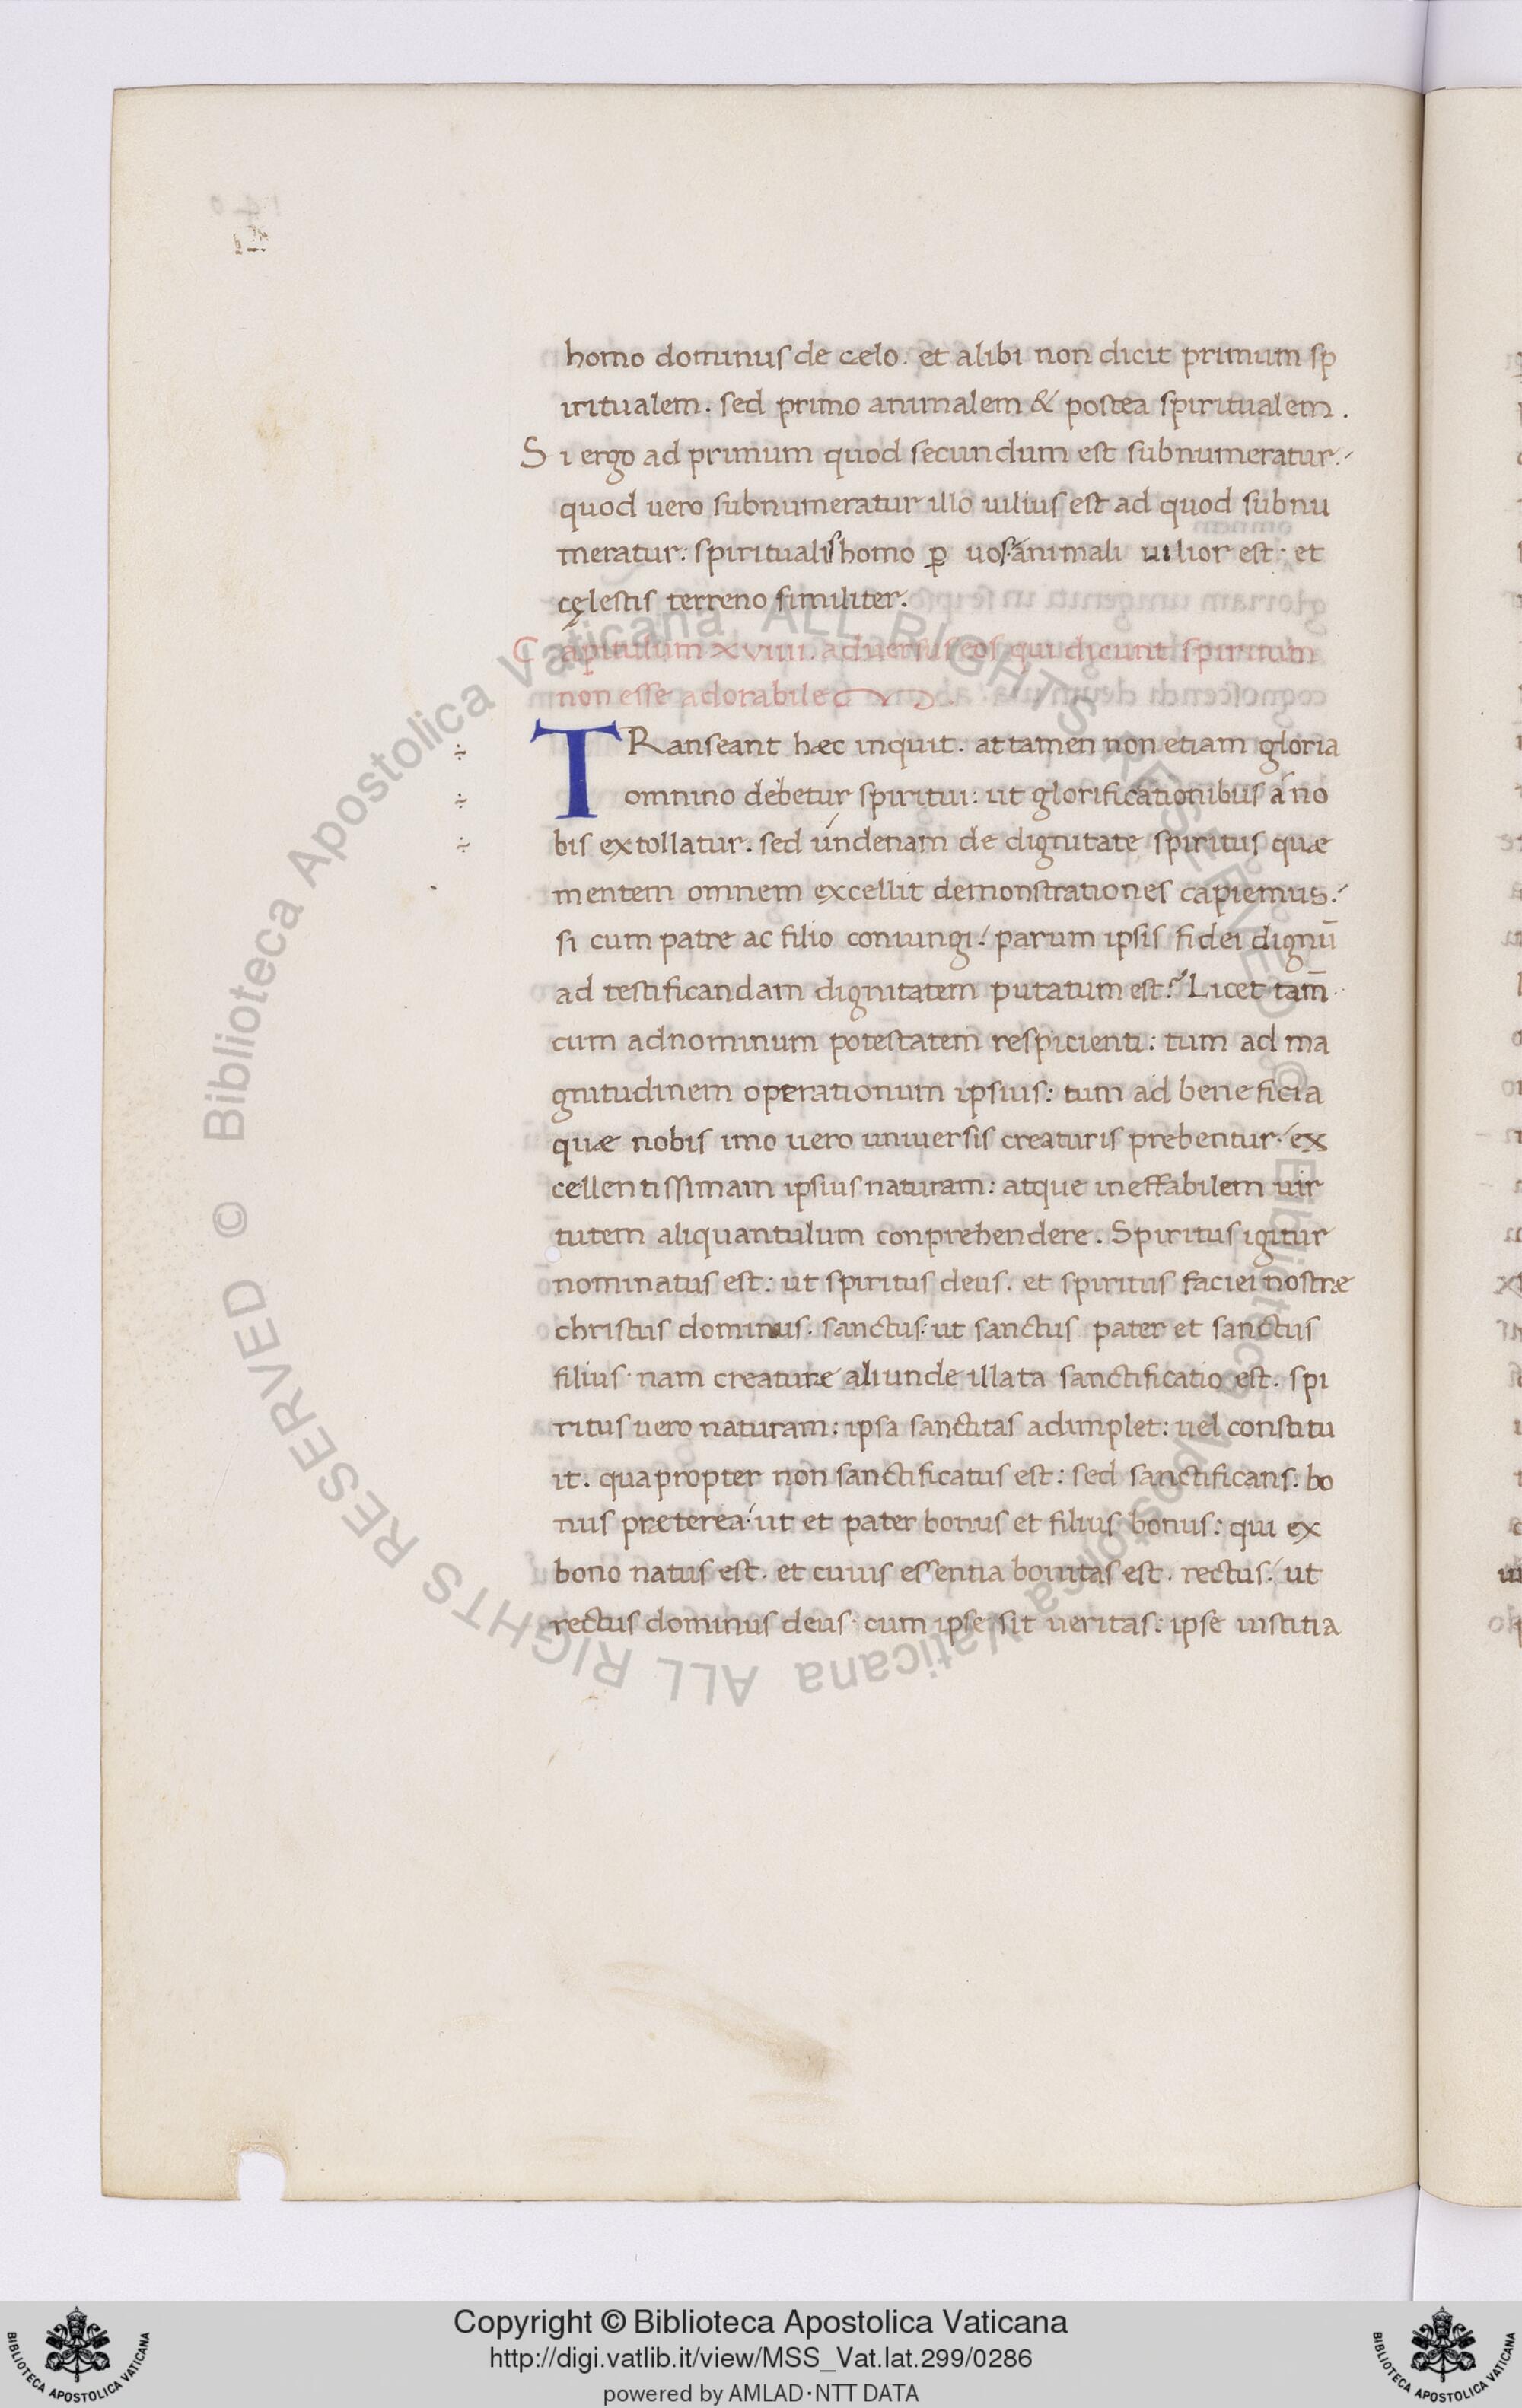 homo dominus de celo. et alibi non dicit primum sp
iritualem. sed primo animalem & postea spiritualem.
Si ergo ad primum quod secundum est subnumeratur.
quod uero subnumeratur illo uilius est ad quod subnu
meratur: spiritualis homo ꝑ uos animali uilior est: et
cęlestis terreno similiter.
Capitulum xviiii. aduersus eos qui dicunt spiritum
non esse adorabile
TRanseant hæc inquit. attamen non etiam gloria
omnino debetur spiritui: ut glorificationibus a no
bis extollatur. sed undenam de dignitate spiritus quæ
mentem omnem excellit demonstrationes capiemus.
si cum patre ac filio coniungi. parum ipsis fidei dignū
ad testificandam dignitatem putatum est? Licet tam̄
cum adnominum potestatem respicienti: tum ad ma
gnitudinem operationum ipsius: tum ad beneficia
quæ nobis imo uero uniuersis creaturis prebentur. ex
cellentissimam ipsius naturam: atque ineffabilem uir
tutem aliquantulum conprehendere. Spiritus igitur
nominatus est: ut spiritus deus. et spiritus faciei nostræ
christus dominus. sanctus: ut sanctus pater et sanctus
filius. nam creature aliunde illata sanctificatio est. spi
ritus uero naturam: ipsa sanctitas adimplet: uel constitu
it. quapropter non sanctificatus est: sed sanctificans. bo
nus preterea. ut et pater bonus et filius bonus: qui ex
bono natus est. et cuius essentia bonitas est. rectus. ut
rectus dominus deus. cum ipse sit ueritas: ipse iustitia
© Biblioteca Apostolica Vaticana ALL RIGHTS RESERVED
© Biblioteca Apostolica Vaticana ALL RIGHTS RESERVED
Copyright © Biblioteca Apostolica Vaticana
http://digi.vatlib.it/view/MSS_Vat.lat.299/0286
powered by AMLAD·NTT DATA
BIBLIOTECA APOSTOLICA VATICANA
BIBLIOTECA APOSTOLICA VATICANA